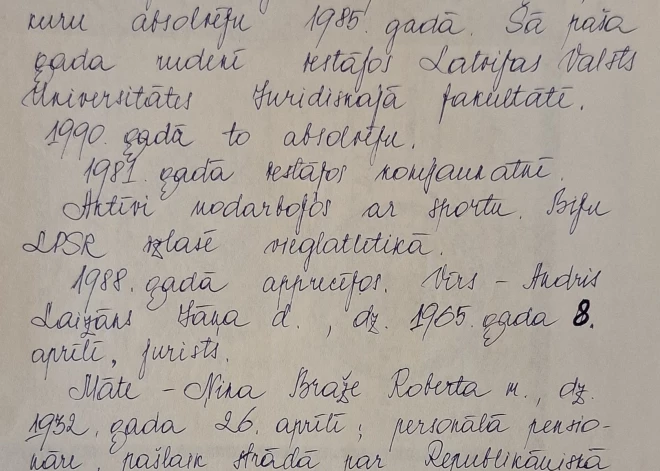 kuru absolvēju 1985. gadā. Šā paša
gada rudenī iestājos Latvijas Valsts
Universitātes Juridiskajā fakultātē.
1990. gadā to absolvēju.
1981. gadā iestājos komjaunatnē.
Aktīvi nodarbojos ar sportu. Biju
LPSR izlasē vieglatlētikā.
1988. gadā apprecējos. Vīrs - Andris
Laizāns Jāņa d., dz. 1965. gada 8.
aprīlī, jurists.
Māte - Nina Braže Roberta m., dz.
1932. gada 26. aprīlī; personālā pensio-
nāre, pašlaik strādā par Republikāniskā